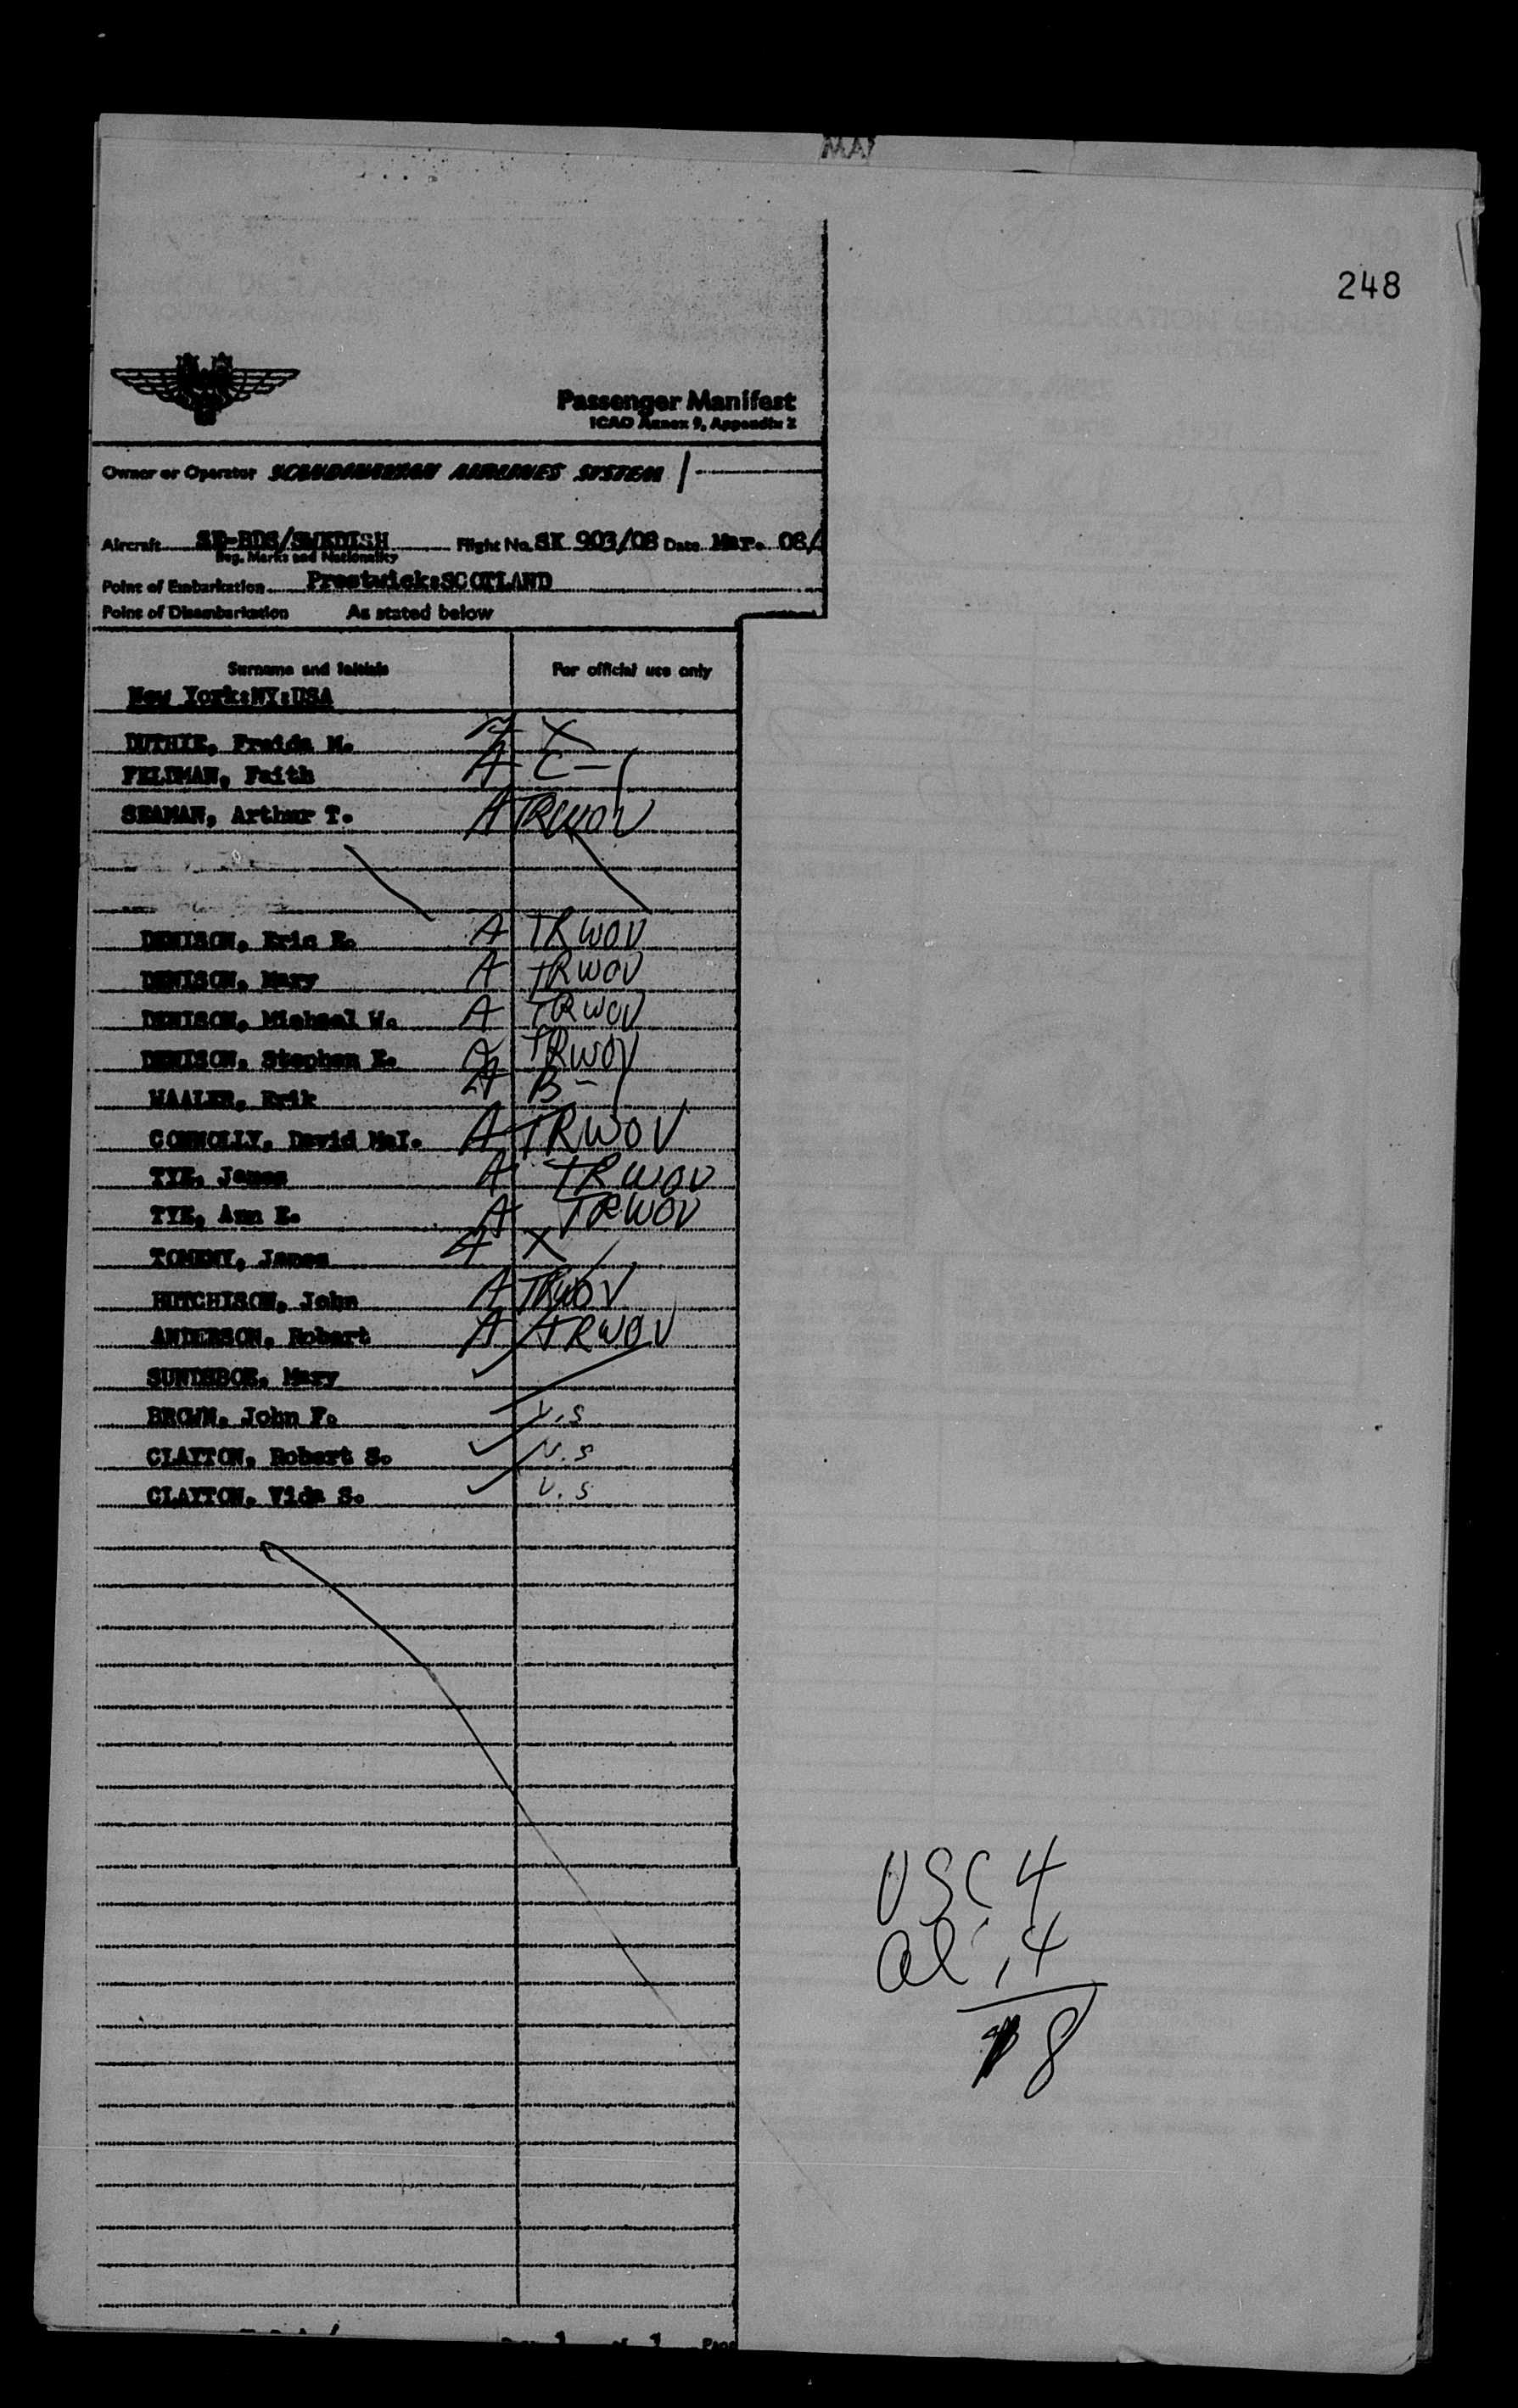 MA
248
Passenger Manifest
ICAO Annex 9, Appendix 2
Owner or Operator SCANDANAVIAN AIRLINES SYSTEM
Aircraft SE-BDS/SWEDISH Flight No. SK 903/08 Date Mar. 08/
Reg. Marks and Nationality
Point of Embarkation Prestwick:SCOTLAND
Point of Disembarkation As stated below
Surname and Initials For official use only
New York:NY:USA
DUTHIE, Fraida M. A X
FELDMAN, Faith A C-1
SEAMAN, Arthur T. A TRWOV
DENISON, Eric E. A TRWOV
DENISON, Mary A TRWOV
DENISON, Michael W. A TRWOV
DENISON, Stephen E. A TRWOV
WAALER, Erik A B-1
CONNOLLY, David McI. A TRWOV
TYE, James A TRWOV
TYE, Ann E. A TRWOV
TOMENY, James A X
HUTCHISON, John A TRWOV
ANDERSON, Robert A TRWOV
SUNDSBOE, Mary
BROWN, John F. U.S
CLAYTON, Robert S. U.S
CLAYTON, Vida S. U.S
USC 4
al 14
18
1 of 1 Page